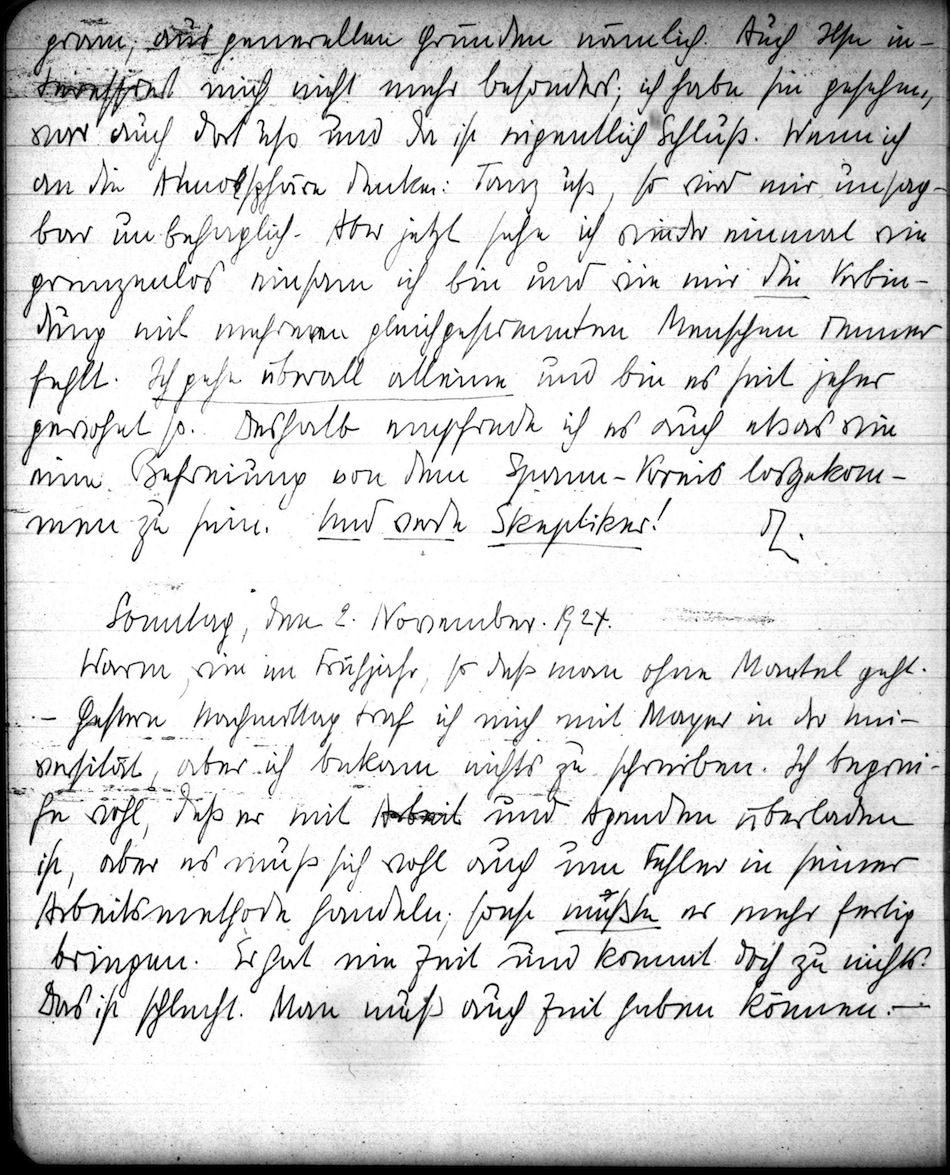 gram, aus generellen Gründen nämlich. Auch Ilse in-
teressiert mich nicht mehr besonders; ich habe sie gesehen,
war auch dort usf und da ist eigentlich Schluß. Wenn ich
an die Atmosphäre denke: Tanz usf, so wird mir unsag-
bar unbehaglich. Aber jetzt sehe ich wieder einmal wie
grenzenlos einsam ich bin und wie mir die Verbin-
dung mit mehreren gleichgestimmten Menschen immer
fehlt. Ich gehe überall alleine und bin es seit jeher
gewohnt so. Deshalb empfinde ich es auch etwas wie
eine Befreiung von dem Spann-Kreis losgekom-
men zu sein. Und werde Skeptiker!
Sonntag, den 2. November. 1924.
Warm, wie im Frühjahr, so daß man ohne Mantel geht.
– Gestern Nachmittag traf ich mich mit Mayer in der Uni-
versität, aber ich bekam nichts zu schreiben. Ich begrei-
fe wohl, daß er mit Arbeit und Agenden überladen
ist, aber es muß sich wohl auch um Fehler in seiner
Arbeitsmethode handeln; sonst müßte er mehr fertig
bringen. Er hat nie Zeit und kommt doch zu nichts.
Das ist schlecht. Man muß auch Zeit haben können. –